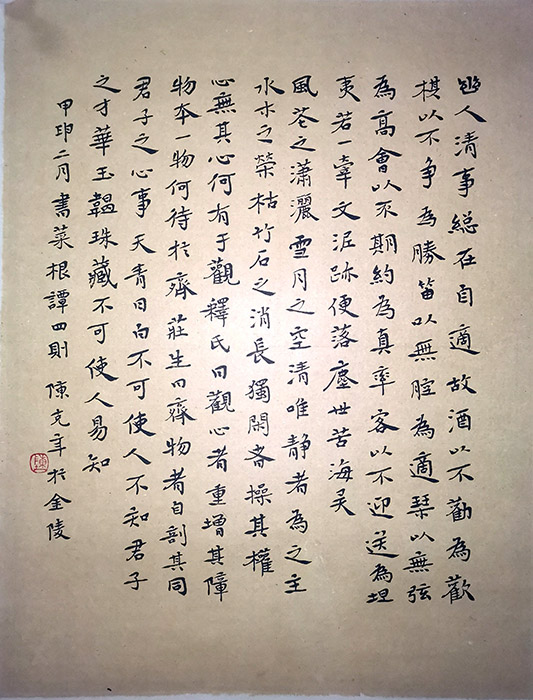 幽人清事總在自適故酒以不勸為歡
棋以不争為勝笛以無腔為適琴以無弦
為高會以不期約為真率客以不迎送為坦
夷若一牽文泥跡便落塵世苦海矣
風花之瀟灑雪月之空清唯靜者為之主
水木之榮枯竹石之消長獨閑者操其權
心無其心何有于觀釋氏曰觀心者重增其障
物本一物何待於齊莊生曰齊物者自剖其同
君子之心事天青日白不可使人不知君子
之才華玉韞珠藏不可使人易知
甲卯二月書菜根譚四則陳克年於金陵